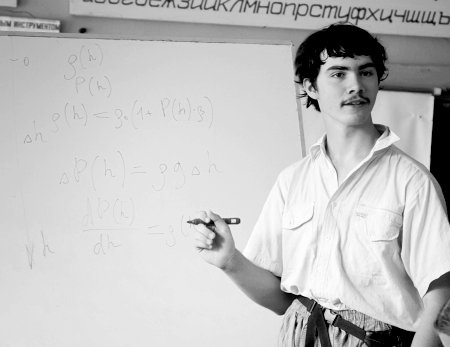 абвгдеёжзийклмнопрстуфхцчшщъ
ИНСТРУМЕНТОМ
-0 ρ(h)
P(h)
ρ(h) = ρ₀(1 + P(h)·β)
Δh
ΔP(h) = ρgΔh
dP(h)
dh = ρ(
h